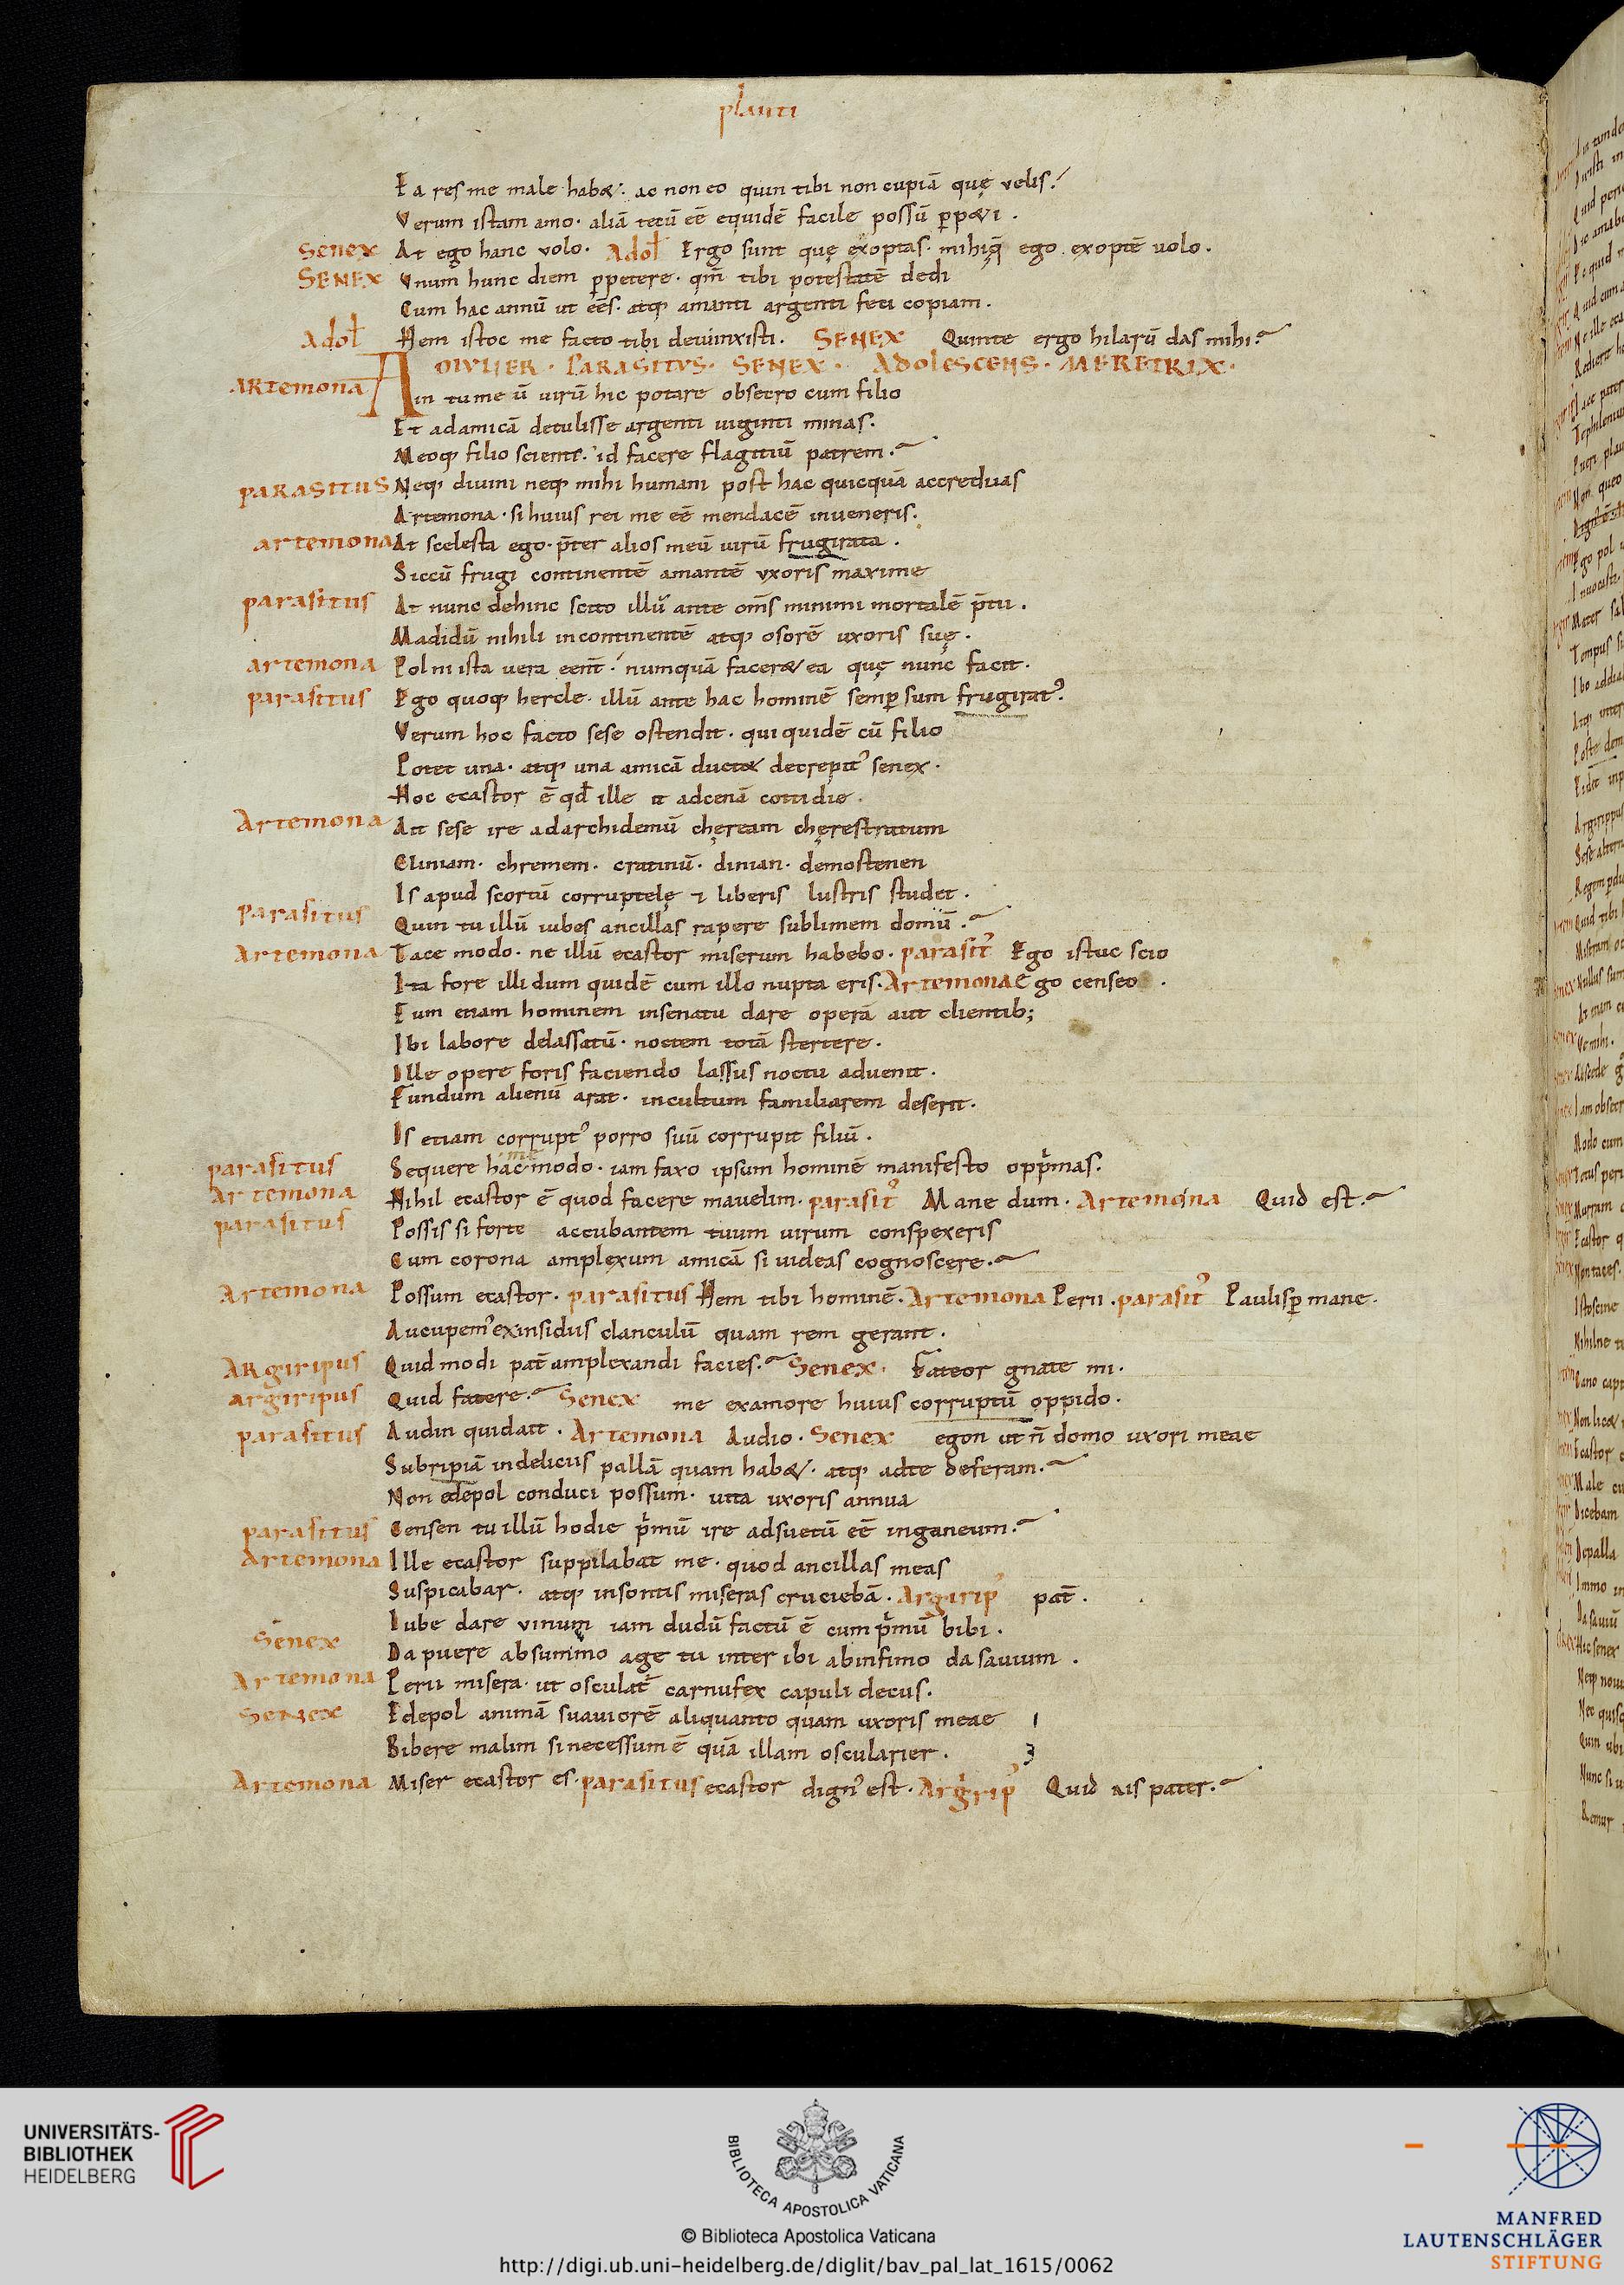 plauti
Ea res me male habet: ac non eo quin tibi non cupiā quę velis.
Verum istam amo. aliā tecū eē equidē facile possū ꝑpeti.
Senex At ego hanc volo. Adol Ergo sunt quę exoptas. mihiq; ego exoptē uolo.
SENEX Vnum hunc diem ꝑpetere. qm̄ tibi potestatē dedi
Cum hac annū ut eēs. atq; amanti argenti feci copiam.
Adol Hem istoc me facto tibi deuinxisti. SENEX Quinte ergo hilarū das mihi.
MVLIER. PARASITVS. SENEX. ADOLESCENS. MERETRIX.
ARTemona Ain tu me ū uirū hic potare obsecro cum filio
Et adamicā detulisse argenti uiginti minas.
Meoq; filio scient. id facere flagitiū patrem.
PARASITUS Neq; diuini neq; mihi humani post hac quicquā accreduas
Artemona. si huius rei me eē mendacē inueneris.
artemona At scelesta ego. p̄ter alios meū uirū frugirata.
Siccū frugi continentē amantē vxoris maxime
parasitus At nunc dehinc scito illū ante om̄s minimi mortalē p̄tii.
Madidū nihili incontinentē atq; osorē uxoris suę.
artemona Pol ni ista vera eent̄. numquā faceret ea quę nunc facit.
parasitus Ego quoq; hercle. illū ante hac hominē semꝑ sum frugirat'.
Verum hoc facto sese ostendit. qui quidē cū filio
Potet una. atq; una amicā ductet decrepit' senex.
Hoc ecastor ē qd̄ ille it adcenā cottidie.
Artemona Ait sese ire adarchidemū chęream chęrestratum
Cliniam. chremem. cratinū. dinian. demostenen
Is apud scortū corruptelę ⁊ liberis lustris studet.
Parasitus Quin tu illū iubes ancillas rapere sublimem domū.
Artemona Tace modo. ne illū ecastor miserum habebo. parasit' Ego istuc scio
Ita fore illi dum quidē cum illo nupta eris. Artemona Ego censeo.
Eum etiam hominem insenatu dare operā aut clientib;
Ibi labore delassatū. noctem totā stertere.
Ille opere foris faciendo lassus noctu aduenit.
Fundum alienū arat. incultum familiarem deserit.
Is etiam corrupt' porro suū corrupit filiū.
parasitus Sequere hac me modo. iam faxo ipsum hominē manifesto opp̄mas.
Artemona Nihil ecastor ē quod facere mauelim. parasit' Mane dum. Artemona Quid est.
parasitus Possis si forte accubantem tuum uirum conspexeris
Cum corona amplexum amicā si uideas cognoscere.
Artemona Possum ecastor. parasitus Hem tibi hominē. Artemona Perii. parasit' Paulisꝑ mane.
Aucupem' exinsidiis clanculū quam rem gerant.
ARgiripus Quid modi pat̄ amplexandi facies. Senex. Fateor gnate mi.
argiripus Quid fatere. Senex me examore huius corruptū oppido.
parasitus Audin quidait. Artemona Audio. Senex egon ut n̄ domo uxori meae
Subripiā indeliciis pallā quam habet. atq; adte deferam.
Non edepol conduci possum. uita uxoris annua
parasitus Censen tu illū hodie p̄mū ire adsuetū eē inganeum.
Artemona Ille ecastor suppilabat me. quod ancillas meas
Suspicabar. atq; insontis miseras cruciebā. Argirip' pat̄.
Iube dare vinum iam dudū factū ē cum p̄mū bibi.
Senex Da puere absummo age tu inter ibi abinfimo da sauium.
Artemona Perii misera. ut osculat̄ carnufex capuli decus.
Senex Edepol animā suauiorē aliquanto quam uxoris meae
Bibere malim si necessum ē quā illam oscularier.
Artemona Miser ecastor es. parasitus ecastor dign' est. Argirip' Quid ais pater.
UNIVERSITÄTS-
BIBLIOTHEK
HEIDELBERG
BIBLIOTECA APOSTOLICA VATICANA
© Biblioteca Apostolica Vaticana
http://digi.ub.uni-heidelberg.de/diglit/bav_pal_lat_1615/0062
MANFRED
LAUTENSCHLÄGER
STIFTUNG